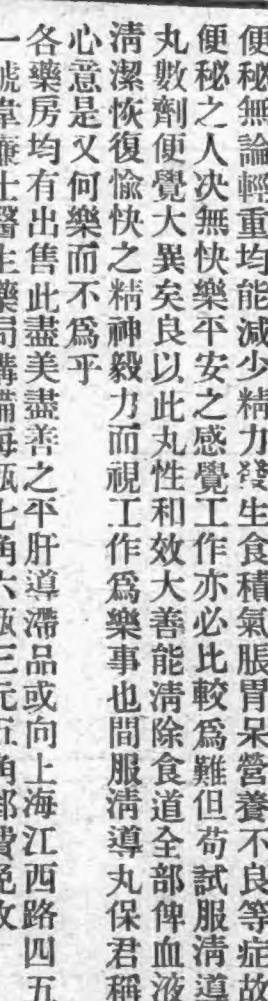 便秘無論輕重均能減少精力發生食積氣脹胃呆營養不良等症故
便秘之人決無快樂平安之感覺工作亦必比較爲難但苟試服清導
丸數劑便覺大異矣良以此丸性和效大善能清除食道全部俾血液
清潔恢復愉快之精神毅力而視工作爲樂事也間服清導丸保君稱
心意是又何樂而不爲乎
各藥房均有出售此盡美盡善之平肝導滯品或向上海江西路四五
一號韋廉士醫生藥局購備每瓶七角六瓶三元五角郵費免收